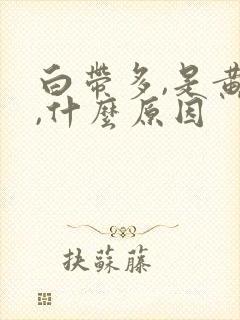 白帶多,是黃
,什麼原因
扶蘇藤